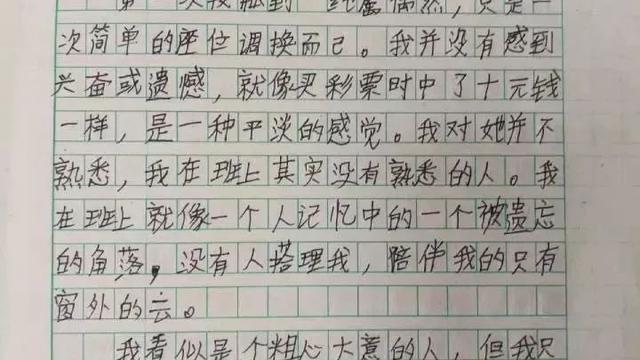 第一次我
纯属偶然，只是一
次简单的座位调换而已。我并没有感到
兴奋或遗憾，就像买彩票时中了十元钱
一样，是一种平淡的感觉。我对她并不
熟悉，我在班上其实没有熟悉的人。我
在班上就像一个人记忆中的一个被遗忘
的角落，没有人搭理我，陪伴我的只有
窗外的云。
我看似是个粗心大意的人，但我只